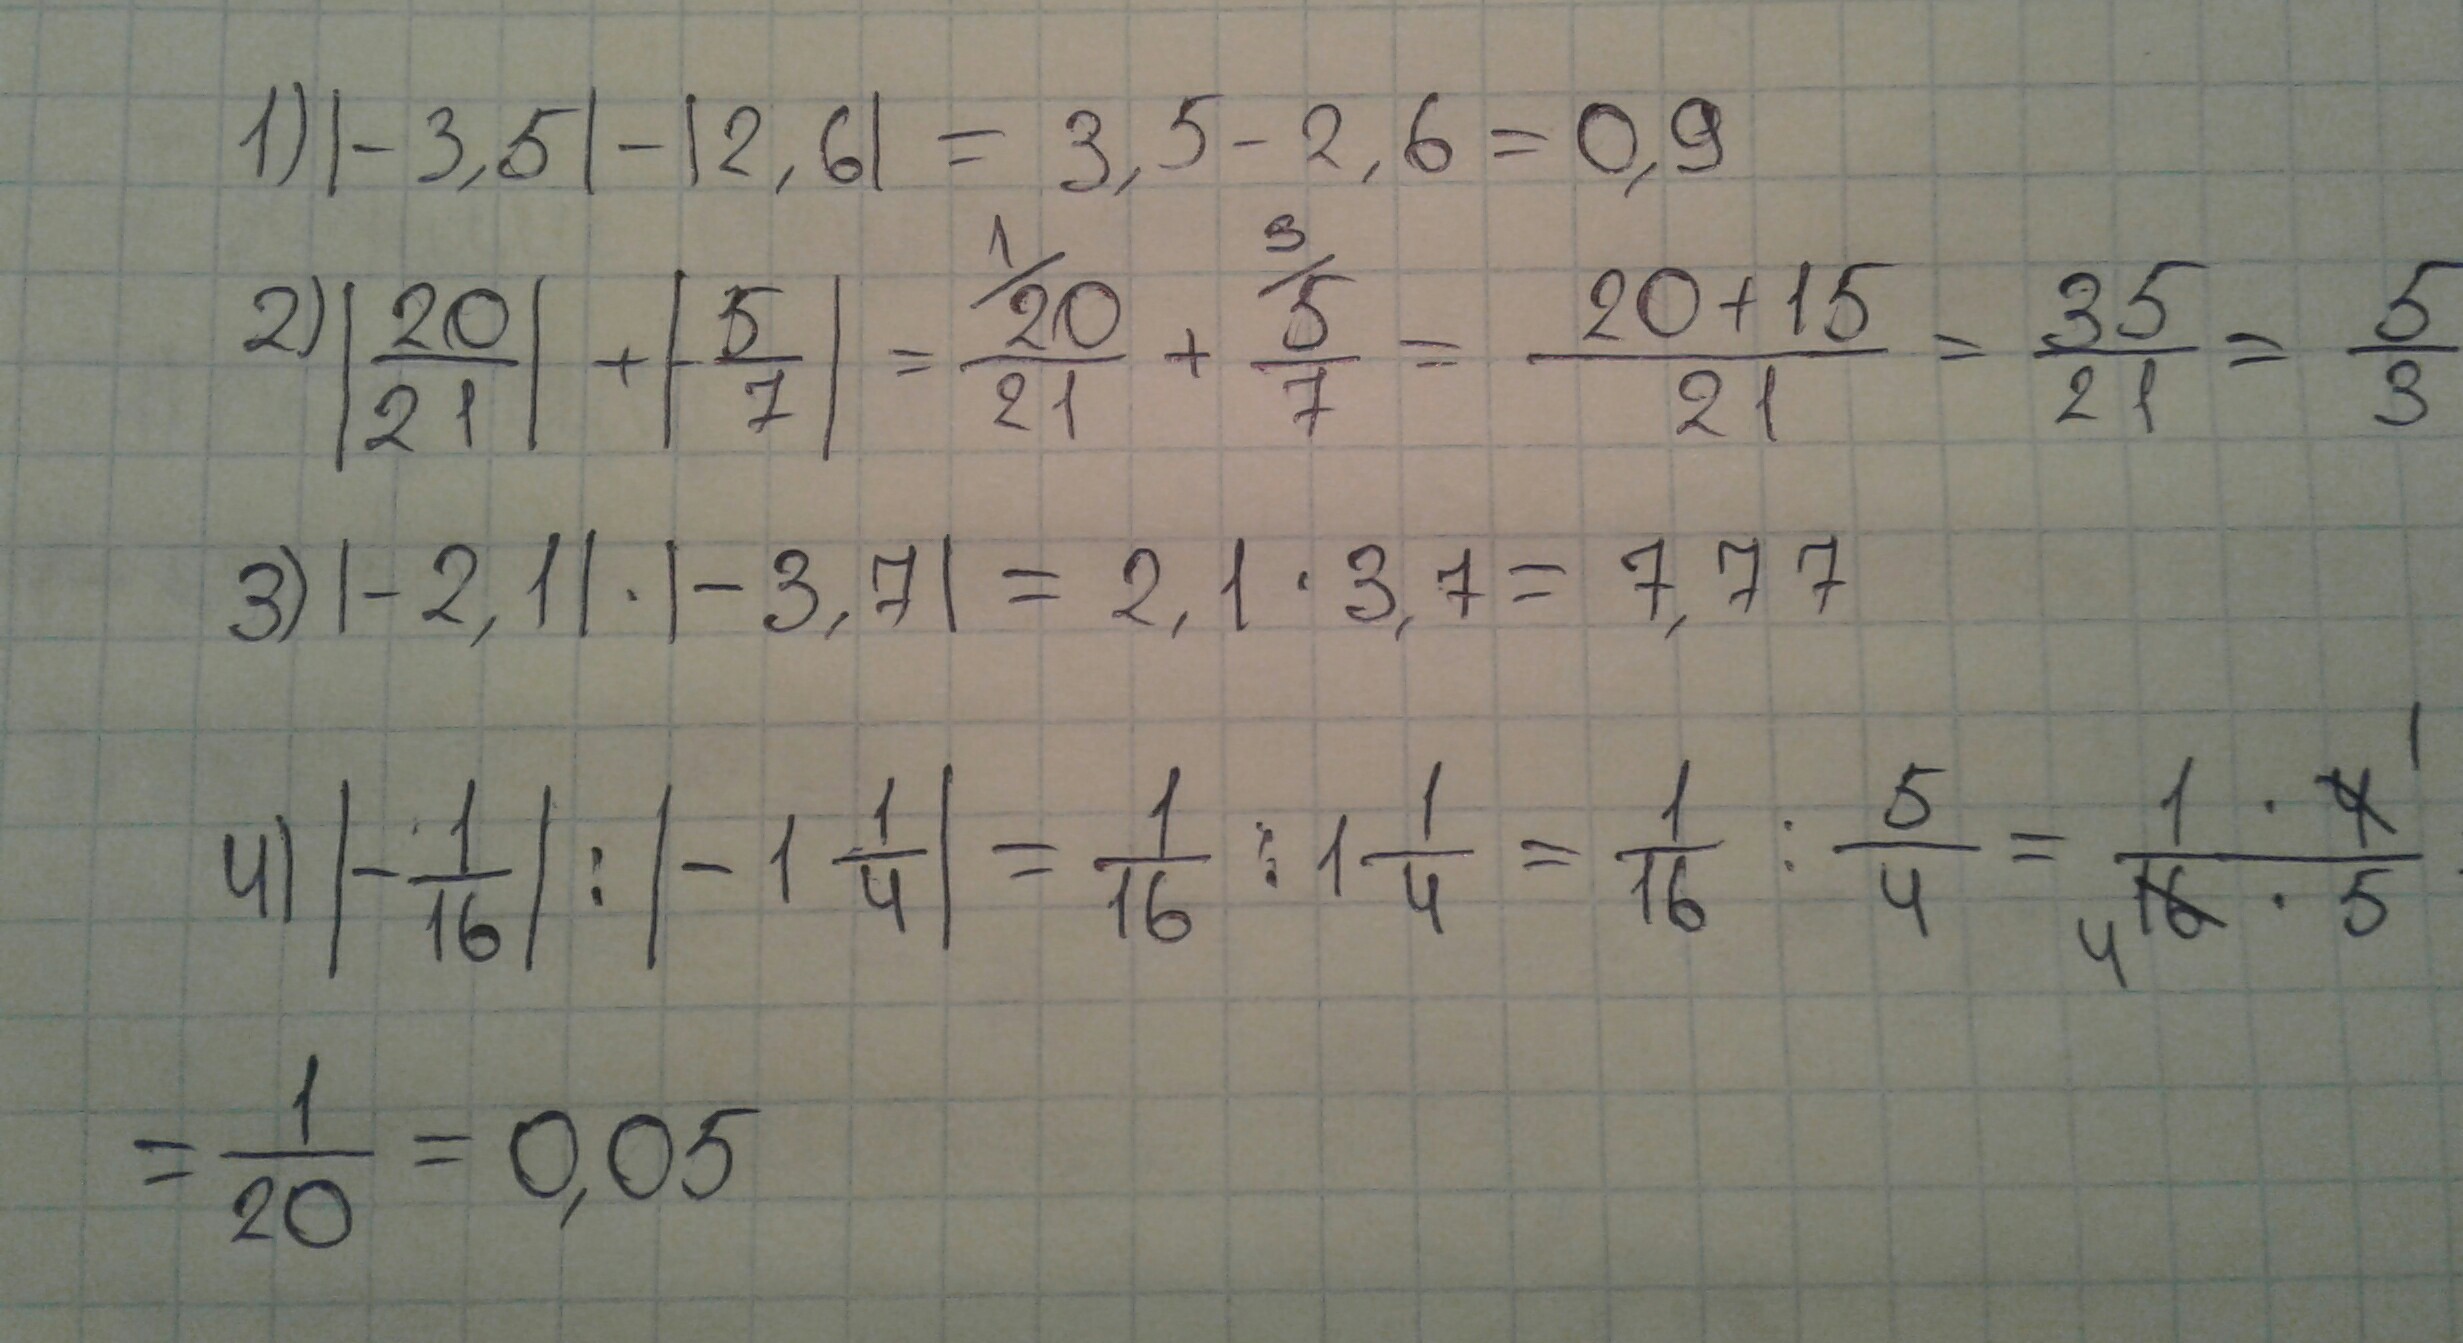 1) |-3,5| - |2,6| = 3,5 - 2,6 = 0,9
2) |20/21| + |-5/7| = 1/ 20/21 + 3/ 5/7 = (20+15)/21 = 35/21 = 5/3
3) |-2,1| · |-3,7| = 2,1 · 3,7 = 7,77
4) |-1/16| : |-1 1/4| = 1/16 : 1 1/4 = 1/16 : 5/4 = (1 · 4 1)/(4 16 · 5)
= 1/20 = 0,05